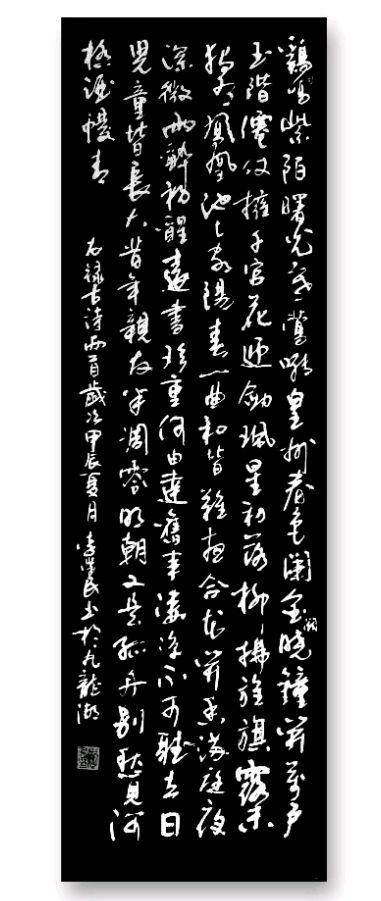 鷄鳴紫陌曙光寒鶯囀皇州春色闌金闕曉鐘開萬戶
玉階僊仗擁千官花迎劍珮星初落柳拂旌旗露未
獨有鳳凰池上客陽春一曲和皆難夜合花開香滿庭夜
深微雨醉初醒遠書珍重何由達舊事凄涼不可聽去日
兒童皆長大昔年親友半凋零明朝又是孤舟別愁見河
橋酒幔青
右録古詩兩首歲次甲辰夏月李民書於九龍湖